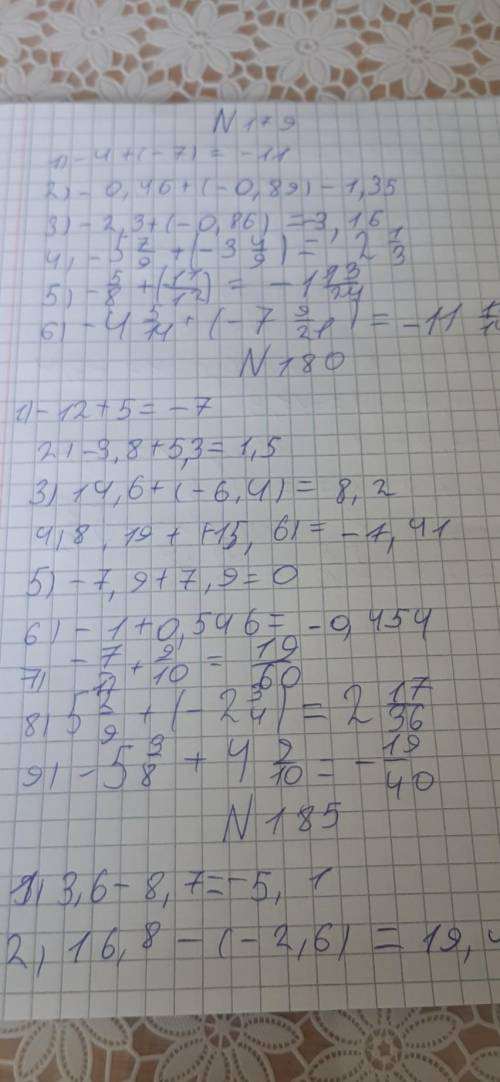 N 179
1) -4 + (-7) = -11
2) - 0,46 + (-0,89) - 1,35
3) - 2,3 + (-0,86) = -3,16
4) -5 7/9 + (-3 4/9) = 2 1/3
5) - 5/8 + (11/12) = -1 13/24
6) -4 5/14 + (-7 9/21) = -11
N 180
1) -12 + 5 = -7
2) -3,8 + 5,3 = 1,5
3) 14,6 + (-6,4) = 8,2
4) 8,19 + (-15,6) = -7,41
5) -7,9 + 7,9 = 0
6) - 1 + 0,546 = -0,454
7) -7/12 + 9/10 = 19/60
8) 5 2/9 + (-2 3/4) = 2 17/36
9) -5 3/8 + 4 9/10 = - 19/40
N 185
1) 3,6 - 8,7 = -5,1
2) 16,8 - (-2,6) = 19,4